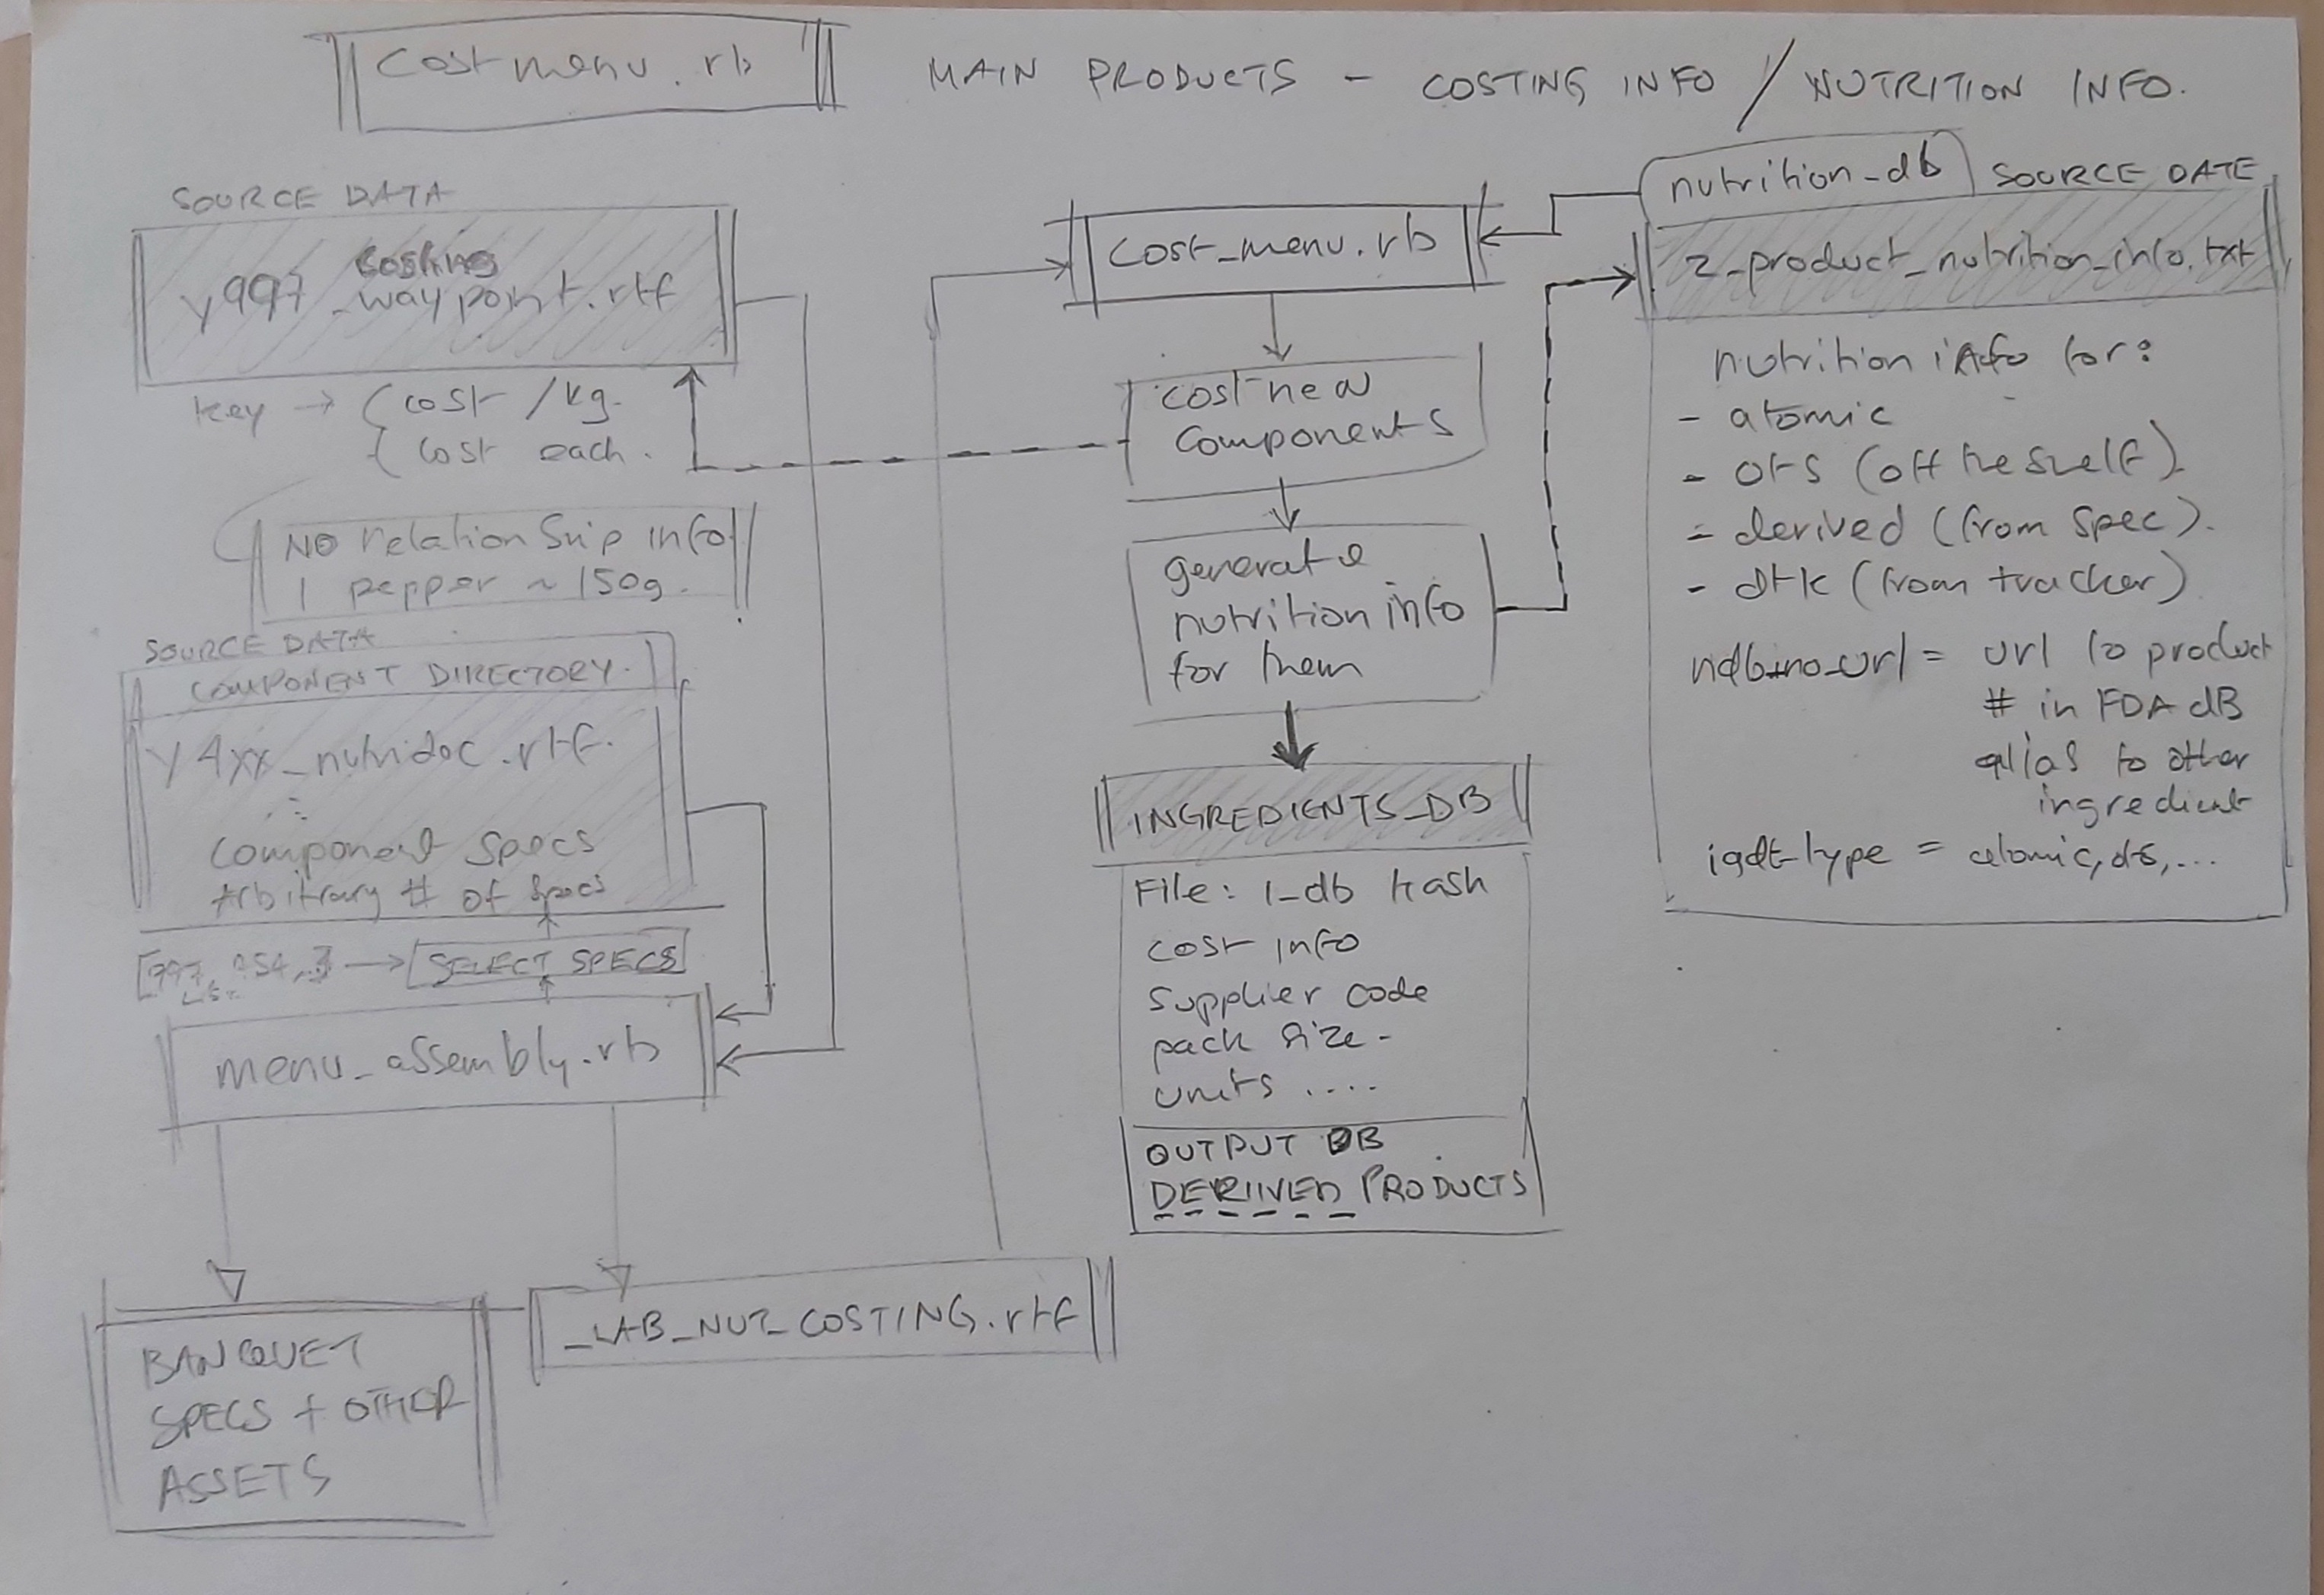 costmenu.rb
MAIN PRODUCTS - COSTING INFO / NUTRITION INFO.
SOURCE DATA
costing
y997_waypoint.rtf
key → { cost /kg.
{ cost each.
NO relationship info
1 pepper ~ 150g.
SOURCE DATA
COMPONENT DIRECTORY.
y4xx_nutridoc.rtf.
:
component specs
Arbitrary # of specs
→ SELECT SPECS
menu_assembly.rb
BANQUET
SPECS + OTHER
ASSETS
_LAB_NUT_COSTING.rtf
cost_menu.rb
cost new
components
generate
nutrition info
for them
INGREDIENTS_DB
File: 1_db hash
cost info
supplier code
pack size -
units ....
OUTPUT DB
DERIIVED PRODUCTS
nutrition_db
SOURCE DATE
2_product_nutrition_info.txt
nutrition info for:
- atomic
- ots (off the shelf).
- derived (from spec).
- dtk (from tracker)
ndb_no_url = url to product
# in FDA dB
alias to other
ingredient
igdt_type =